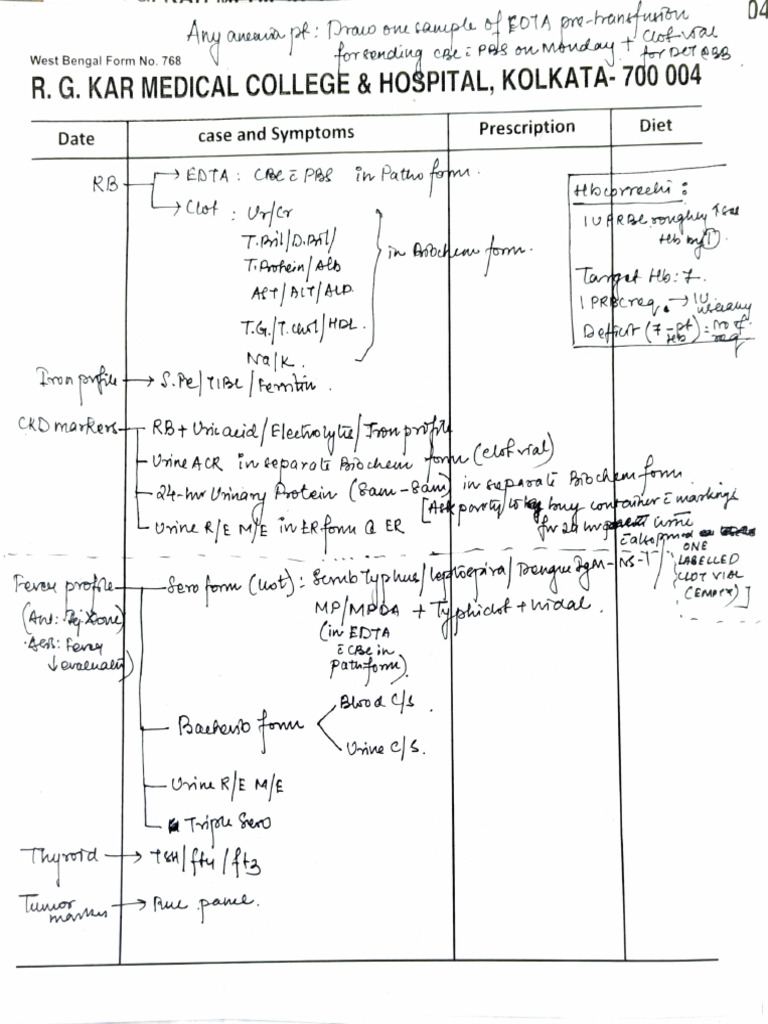 Any anemia pt: Draw one sample of EDTA pre-transfusion
for sending CBC c̄ PBS on Monday + Clot-vial
for DCT @ BB
04
West Bengal Form No. 768
R. G. KAR MEDICAL COLLEGE & HOSPITAL, KOLKATA- 700 004
Date case and Symptoms Prescription Diet
RB → EDTA : CBC c̄ PBS in Patho form.
→ Clot : Ur/Cr
T.Bil/D.Bil/
T.Protein/Alb
AST/ALT/ALP
T.G./T.chol/HDL.
Na/K.
} in Biochem form.
Hb correctn :
1U PRBC roughly ↑ses
Hb by 1.
Target Hb: 7.
1 PRBC req. → 1U
Deficit (7 - pt Hb) = no of
req
Iron profile → S.Fe/TIBC/Ferritin.
CKD markers RB + Uric acid/Electrolytes/Iron profile
Urine ACR in separate Biochem form (clot vial)
24-hr Urinary Protein (8am-8am) in separate Biochem form
[Ask party to buy container c̄ markings
for 24 hr urine
ONE
LABELLED
CLOT VIAL
(EMPTY)]
Urine R/E M/E in ER form @ ER
Fever profile Sero form (clot) : Scrub Typhus/Leptospira/Dengue IgM-NS-1/
MP/MPDA + Typhidot + Widal.
(in EDTA
c̄ CBC in
Patho form)
Fever
↓ evaluatn)
Bacterio form < Blood C/S.
Urine C/S.
Urine R/E M/E
Triple Sero
Thyroid → TSH/ft4/ft3
Tumor
marker → panel.